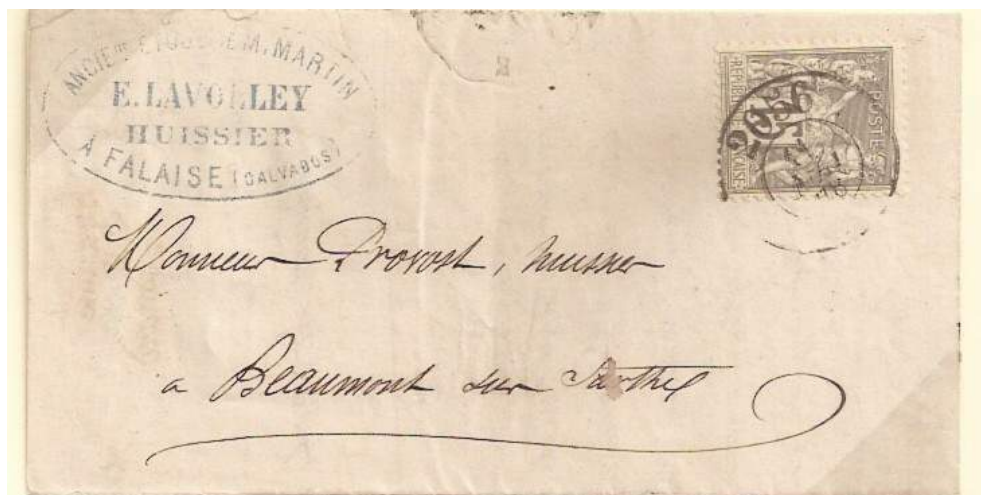 ANCIENNE ETUDE DE M. MARTIN
E. LAVOLLEY
HUISSIER
À FALAISE (CALVADOS)
POSTES
Monsieur Provost, huissier
a Beaumont sur Sarthe